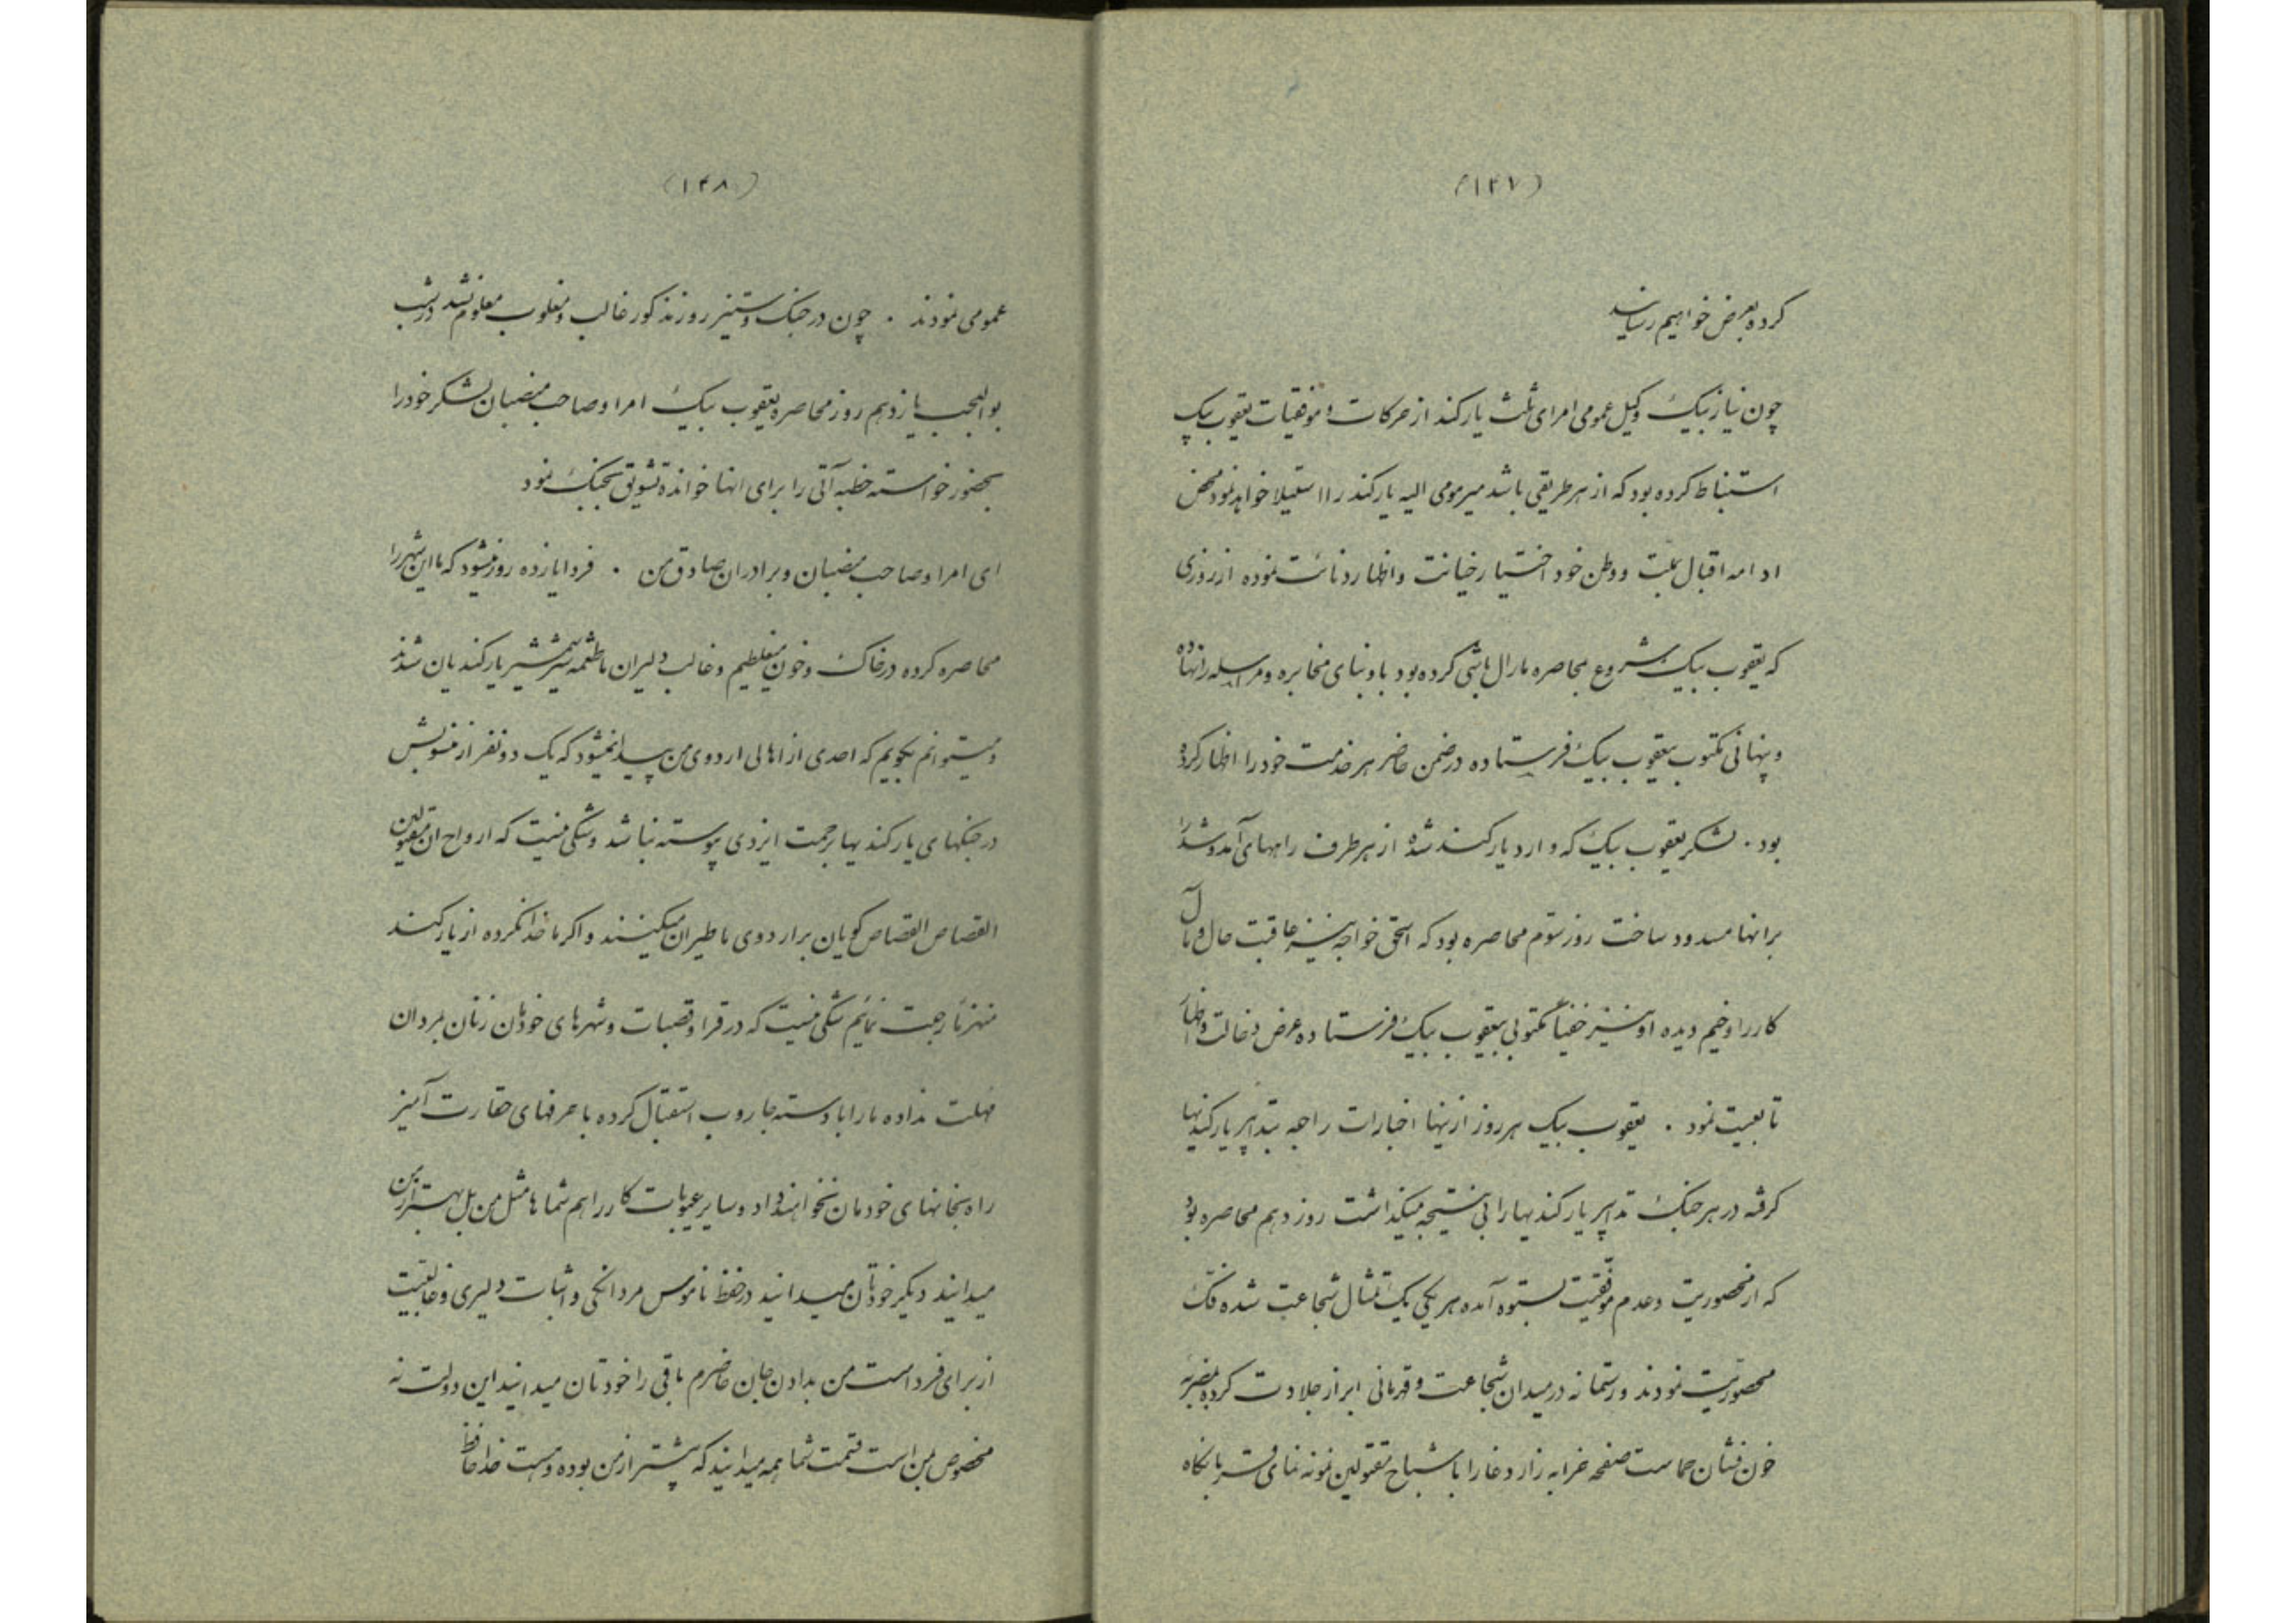 (۱۴۷)
کرده بعرض خواهیم رسانید
چون نیاز بیک وکیل عمومی امرای ثلث یارکند از حرکات و موفقیات یعقوب بیک
استنباط کرده بود که از هر طریقی باشد میر مومی الیه یارکند را استیلا خواهد نمود محض
ادامه اقبال بملت و وطن خود اختیار خیانت و اظهار دنائت نموده از روزی
که یعقوب بیک شروع بمحاصره مارال باشی کرده بود باو بنای مخابره و مراسله را نهاده
و پنهانی مکتوب بیعقوب بیک فرستاده در ضمن حاضر هر خدمت خود را اظهار کرده
بود . لشکر یعقوب بیک که وارد یارکند شده از هر طرف راههای آمد و شد را
برانها مسدود ساخت روز سوم محاصره بود که اسحق خواجه نیز عاقبت حال و مآل
کار را وخیم دیده او نیز خفیاً مکتوبی بیعقوب بیک فرستاده عرض دخالت و اظهار
تابعیت نمود . یعقوب بیک هر روز ازینها اخبارات راجعه بتدابیر یارکندیها
گرفته در هر جنگ تدابیر یارکندیها را بی نتیجه میگذاشت روز دهم محاصره بود
که از محصوریت و عدم موفقیت بستوه آمده هر یکی یک تمثال شجاعت شده فک
محصوریت نمودند و رستمانه در میدان شجاعت و قهرمانی ابراز جلادت کرده بضربه
خون فشان حماست صفحه خرابه زار دغا را با شباح مقتولین نمونه نمای قربانگاه
(۱۴۸)
عمومی نمودند . چون در جنگ و ستیز روز مذکور غالب و مغلوب معلوم نشد در شب
بوالعجب یازدهم روز محاصره یعقوب بیک امرا و صاحب منصبان لشکر خود را
بحضور خواسته خطبه آتی را برای انها خوانده تشویق بجنگ نمود
ای امرا و صاحب منصبان و برادران صادق من . فردا یازده روز میشود که ما این شهر را
محاصره کرده در خاک و خون میغلطیم و غالب دلیران ما طعمه شمشیر یارکندیان شدند
و میتوانم بگویم که احدی از اهالی اردوی من پیدا نمیشود که یک دو نفر از منسوبینش
در جنگهای یارکندیها برحمت ایزدی پیوسته نباشد و شکی نیست که ارواح ان مقتولین
القصاص القصاص گویان بر اردوی ما طیران میکنند و اگر ما خدا نکرده از یارکند
منهزماً رجعت نمائیم شکی نیست که در قرا و قصبات و شهرهای خودمان زنان بمردان
مهلت نداده ما را با دسته جاروب استقبال کرده با حرفهای حقارت آمیز
راه بخانهای خودمان نخواهند داد و سایر عیوبات کار را هم شماها مثل من بل بهتر از من
میدانید دیگر خودتان میدانید در حفظ ناموس مردانگی و اثبات دلیری و غالبیت
از برای فرداست من بدادن جان حاضرم باقی را خودتان میدانید این دولت نه
مخصوص بمن است قسمت شما همه میدانید که پیشتر از من بوده و هست خدا حافظ